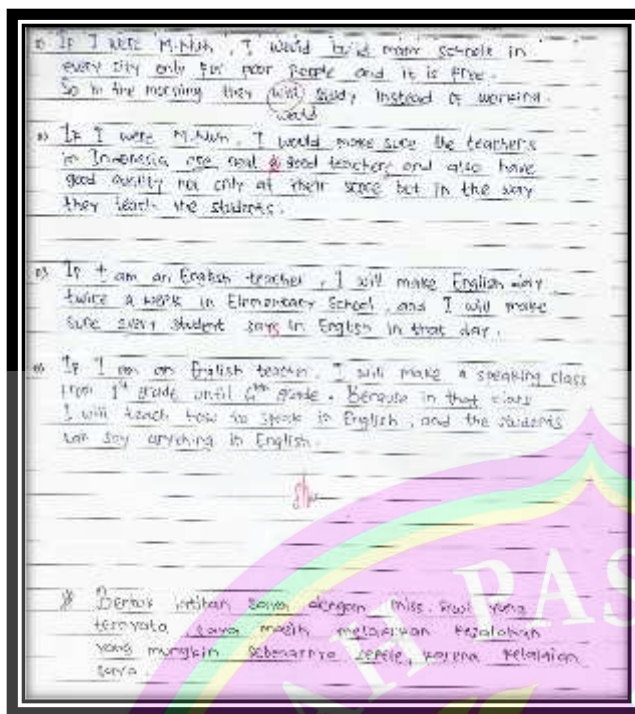 If I were M.Nuh, I would build many schools in
every city only for poor people and it is free.
So in the morning they will study instead of working.
would
If I were M.Nuh, I would make sure the teachers
in Indonesia are real good teachers and also have
good quality not only at their score but in the way
they teach the students.
If I am an English teacher, I will make English day
twice a week in Elementary School, and I will make
sure every student says in English in that day.
If I am an English teacher, I will make a speaking class
from 1st grade until 6th grade. Because in that class
I will teach how to speak in English, and the students
can say anything in English.
Bentuk latihan saya dengan Miss yang
ternyata saya masih melakukan kesalahan
yang mungkin sebenarnya sepele, karena kelalaian
saya.
PAS